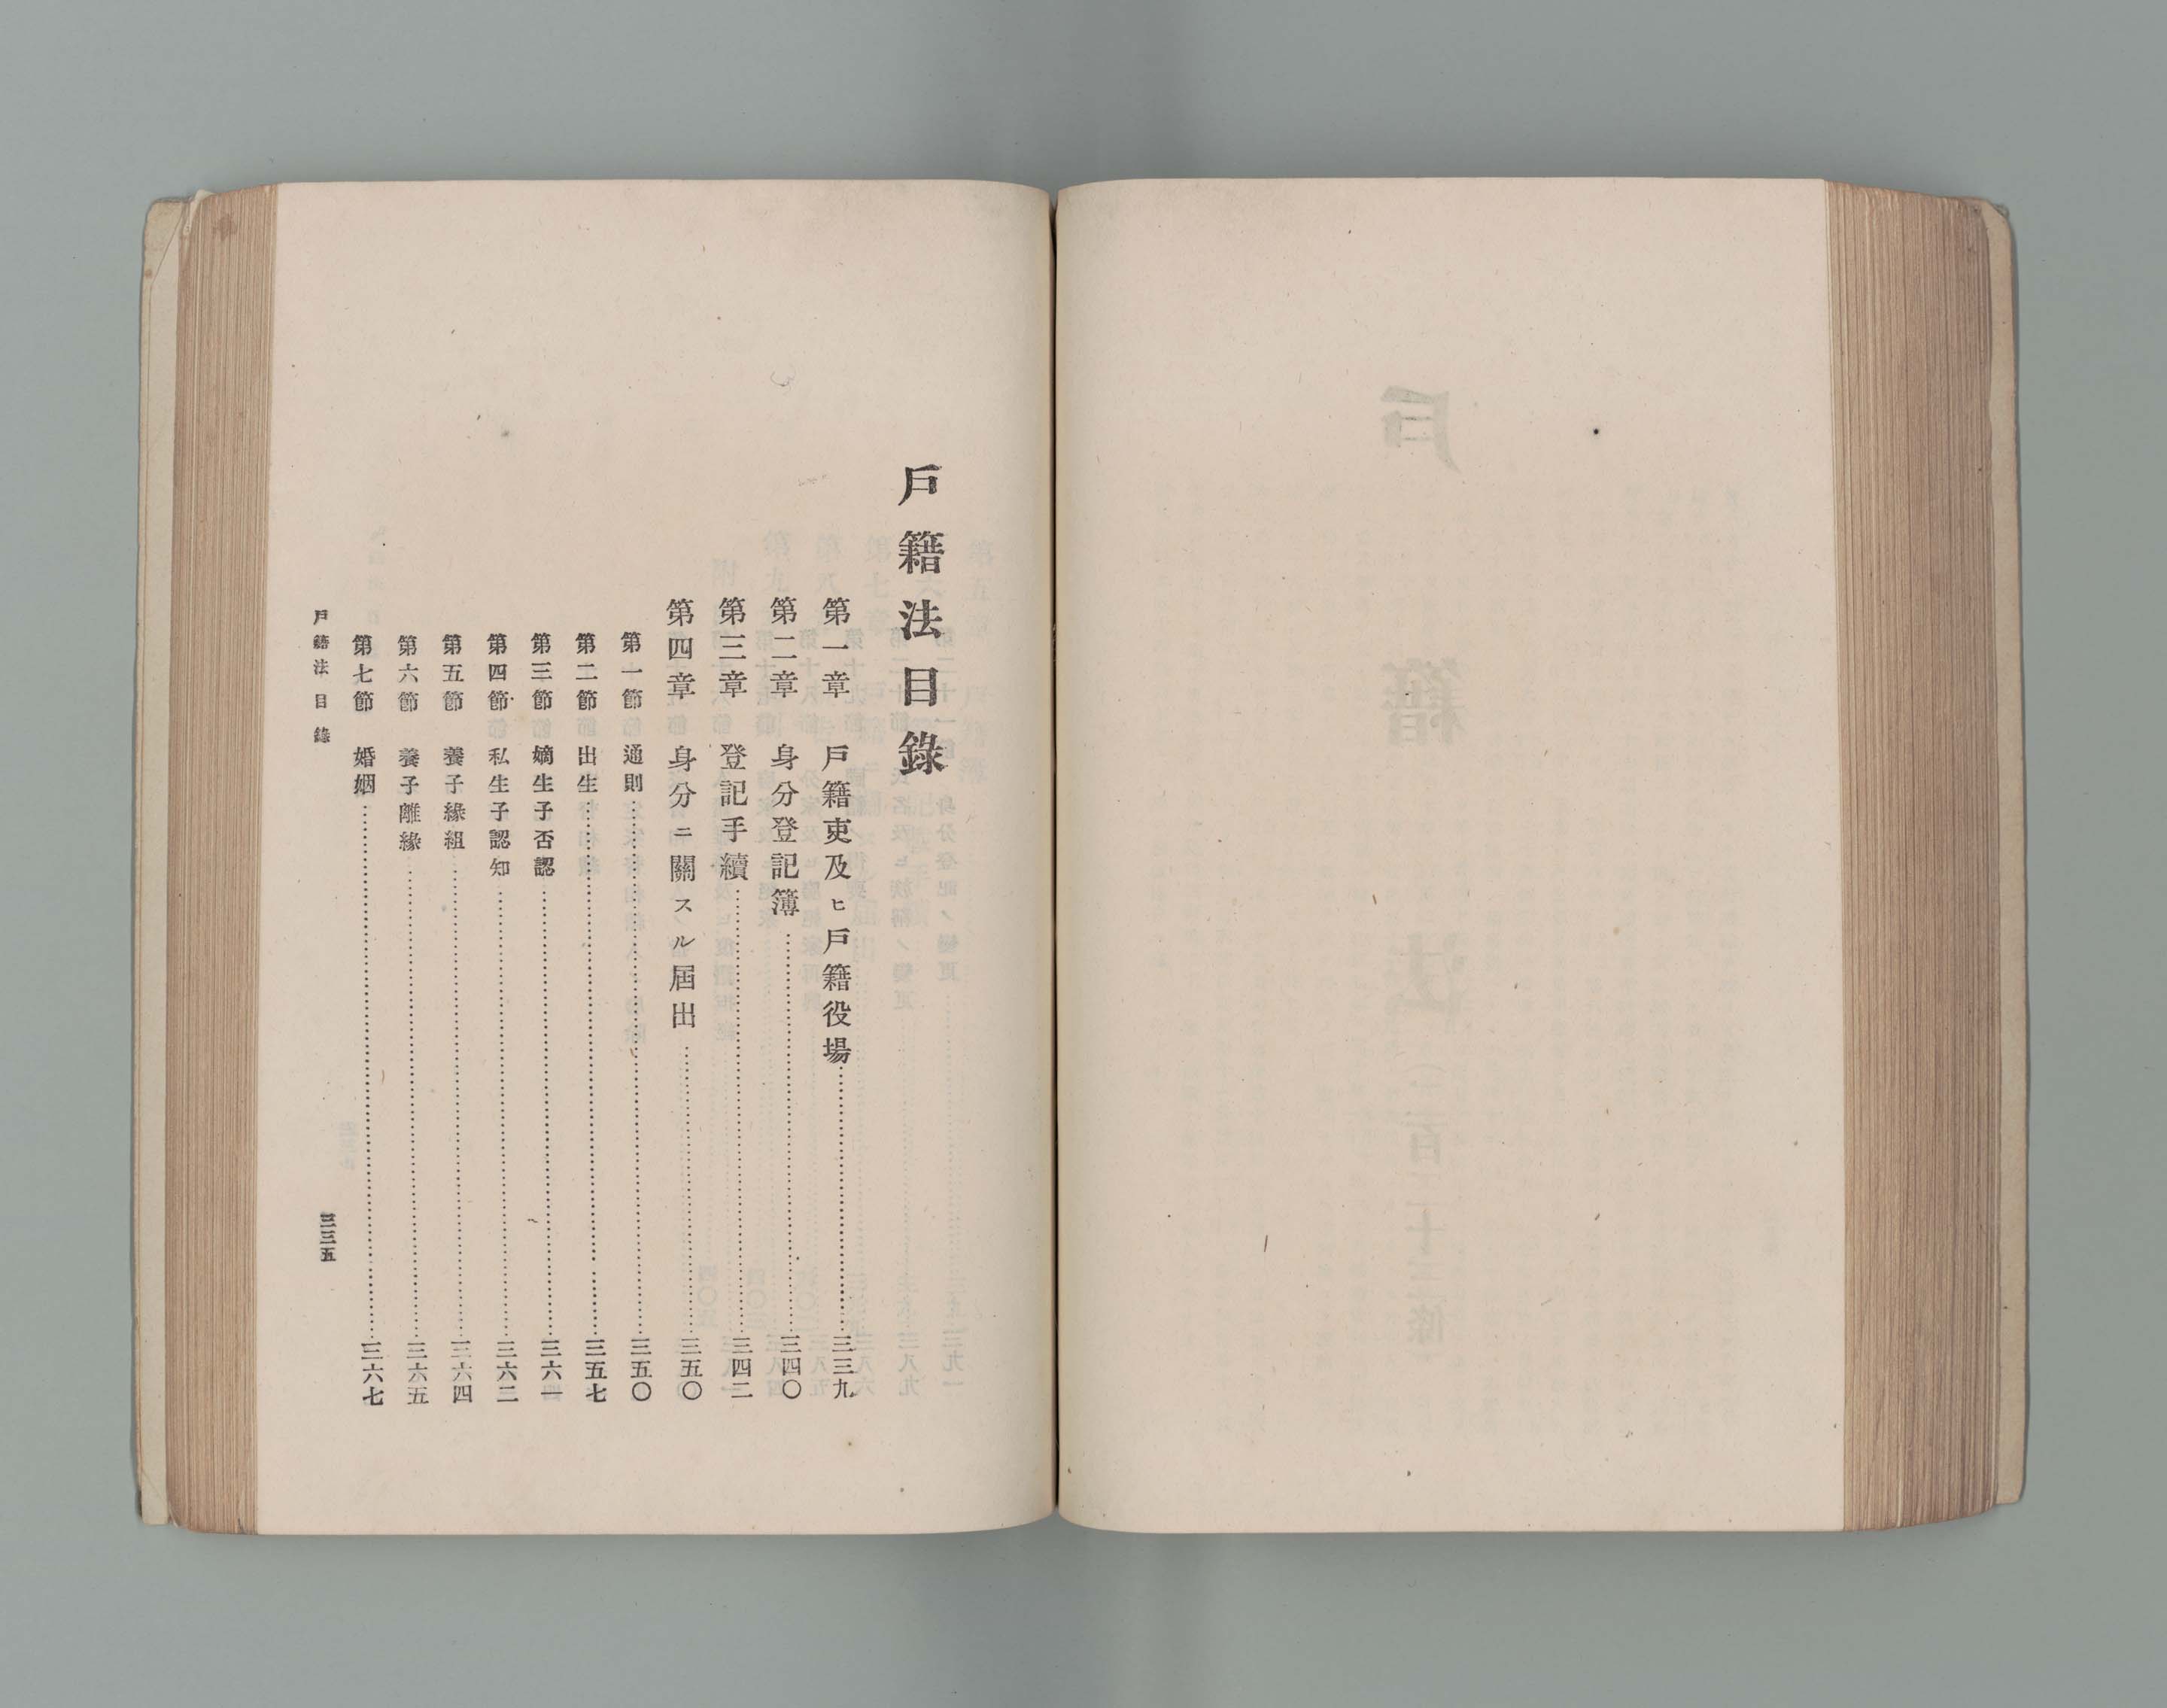 戶籍法目錄
第一章 戶籍吏及ヒ戶籍役場……三三九
第二章 身分登記簿……三四〇
第三章 登記手續……三四二
第四章 身分ニ關スル屆出……三五〇
第一節 通則……三五〇
第二節 出生……三五七
第三節 嫡生子否認……三六一
第四節 私生子認知……三六二
第五節 養子緣組……三六四
第六節 養子離緣……三六五
第七節 婚姻……三六七
戶籍法目錄
三三五